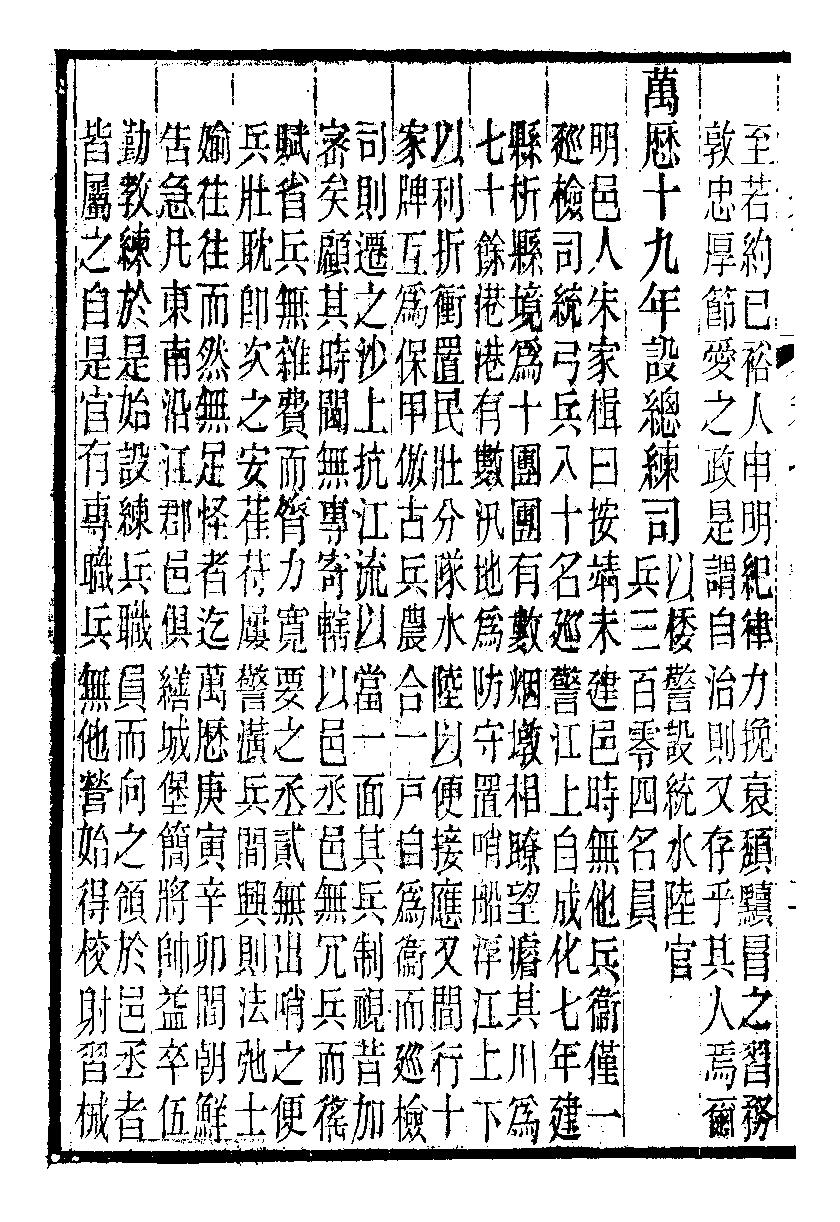 至若約已裕人申明紀律力挽衰頹黷冒之習務
敦忠厚節愛之政是謂自治則又存乎其人焉爾
萬厯十九年設總練司以倭警設統水陸官
兵三百零四名員
明邑人朱家楫曰按靖未建邑時無他兵衞僅一
廵檢司統弓兵八十名廵警江上自成化七年建
縣析縣境爲十團團有數烟墩相瞭望濬其川爲
七十餘港港有數汛地爲防守置哨船浮江上下
以利折衝置民壯分隊水陸以便接應又間行十
家牌互爲保甲倣古兵農合一戸自爲衞而廵檢
司則遷之沙上抗江流以當一面其兵制視昔加
宻矣顧其時閫無專寄轄以邑丞邑無冗兵而徭
賦省兵無雜費而膂力寛要之丞貳無出哨之便
兵壯耽卽次之安萑苻屢警潢兵間興則法弛士
媮往往而然無足怪者迄萬厯庚寅辛卯間朝鮮
告急凡東南沿江郡邑俱繕城堡簡將帥益卒伍
勤教練於是始設練兵職員而向之領於邑丞者
皆屬之自是官有專職兵無他營始得校射習械